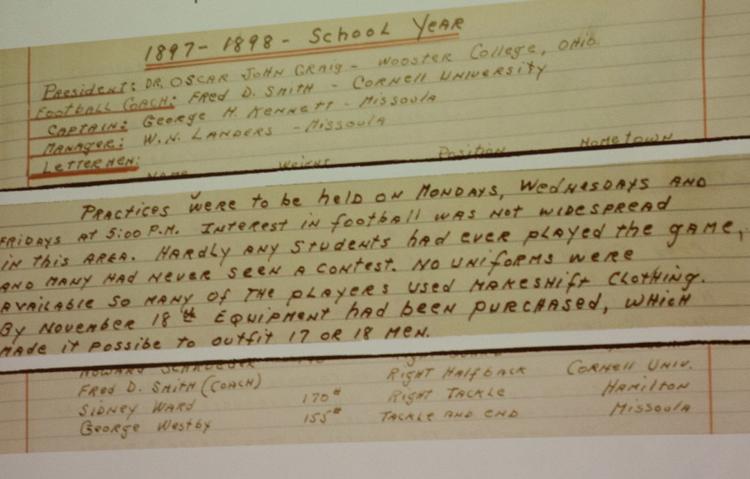 1897-1898 - School Year
President: Dr. Oscar John Craig - Wooster College, Ohio
Football Coach: Fred D. Smith - Cornell University
Captain: George H. Kennett - Missoula
Manager: W.N. Landers - Missoula
Lettermen:
Name Weight Position Hometown
Practices were to be held on Mondays, Wednesdays and
Fridays at 5:00 P.M. Interest in football was not widespread
in this area. Hardly any students had ever played the game,
and many had never seen a contest. No uniforms were
available so many of the players used makeshift clothing.
By November 18th equipment had been purchased, which
made it possibe to outfit 17 or 18 men.
Howard Schroeder
Fred D. Smith (Coach) Right Halfback Cornell Univ.
Sidney Ward 170# Right Tackle Hamilton
George Westby 155# Tackle and End Missoula